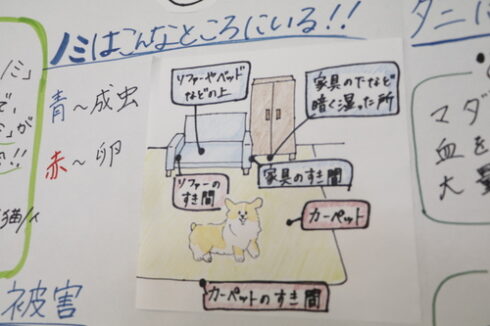 ノミはこんなところにいる!!
青～成虫
赤～卵
ソファーやベッド
などの上
家具の下など
暗く湿った所
ソファーの
すき間
家具のすき間
カーペット
カーペットのすき間
被害
ダニに
マダ
血を
大量